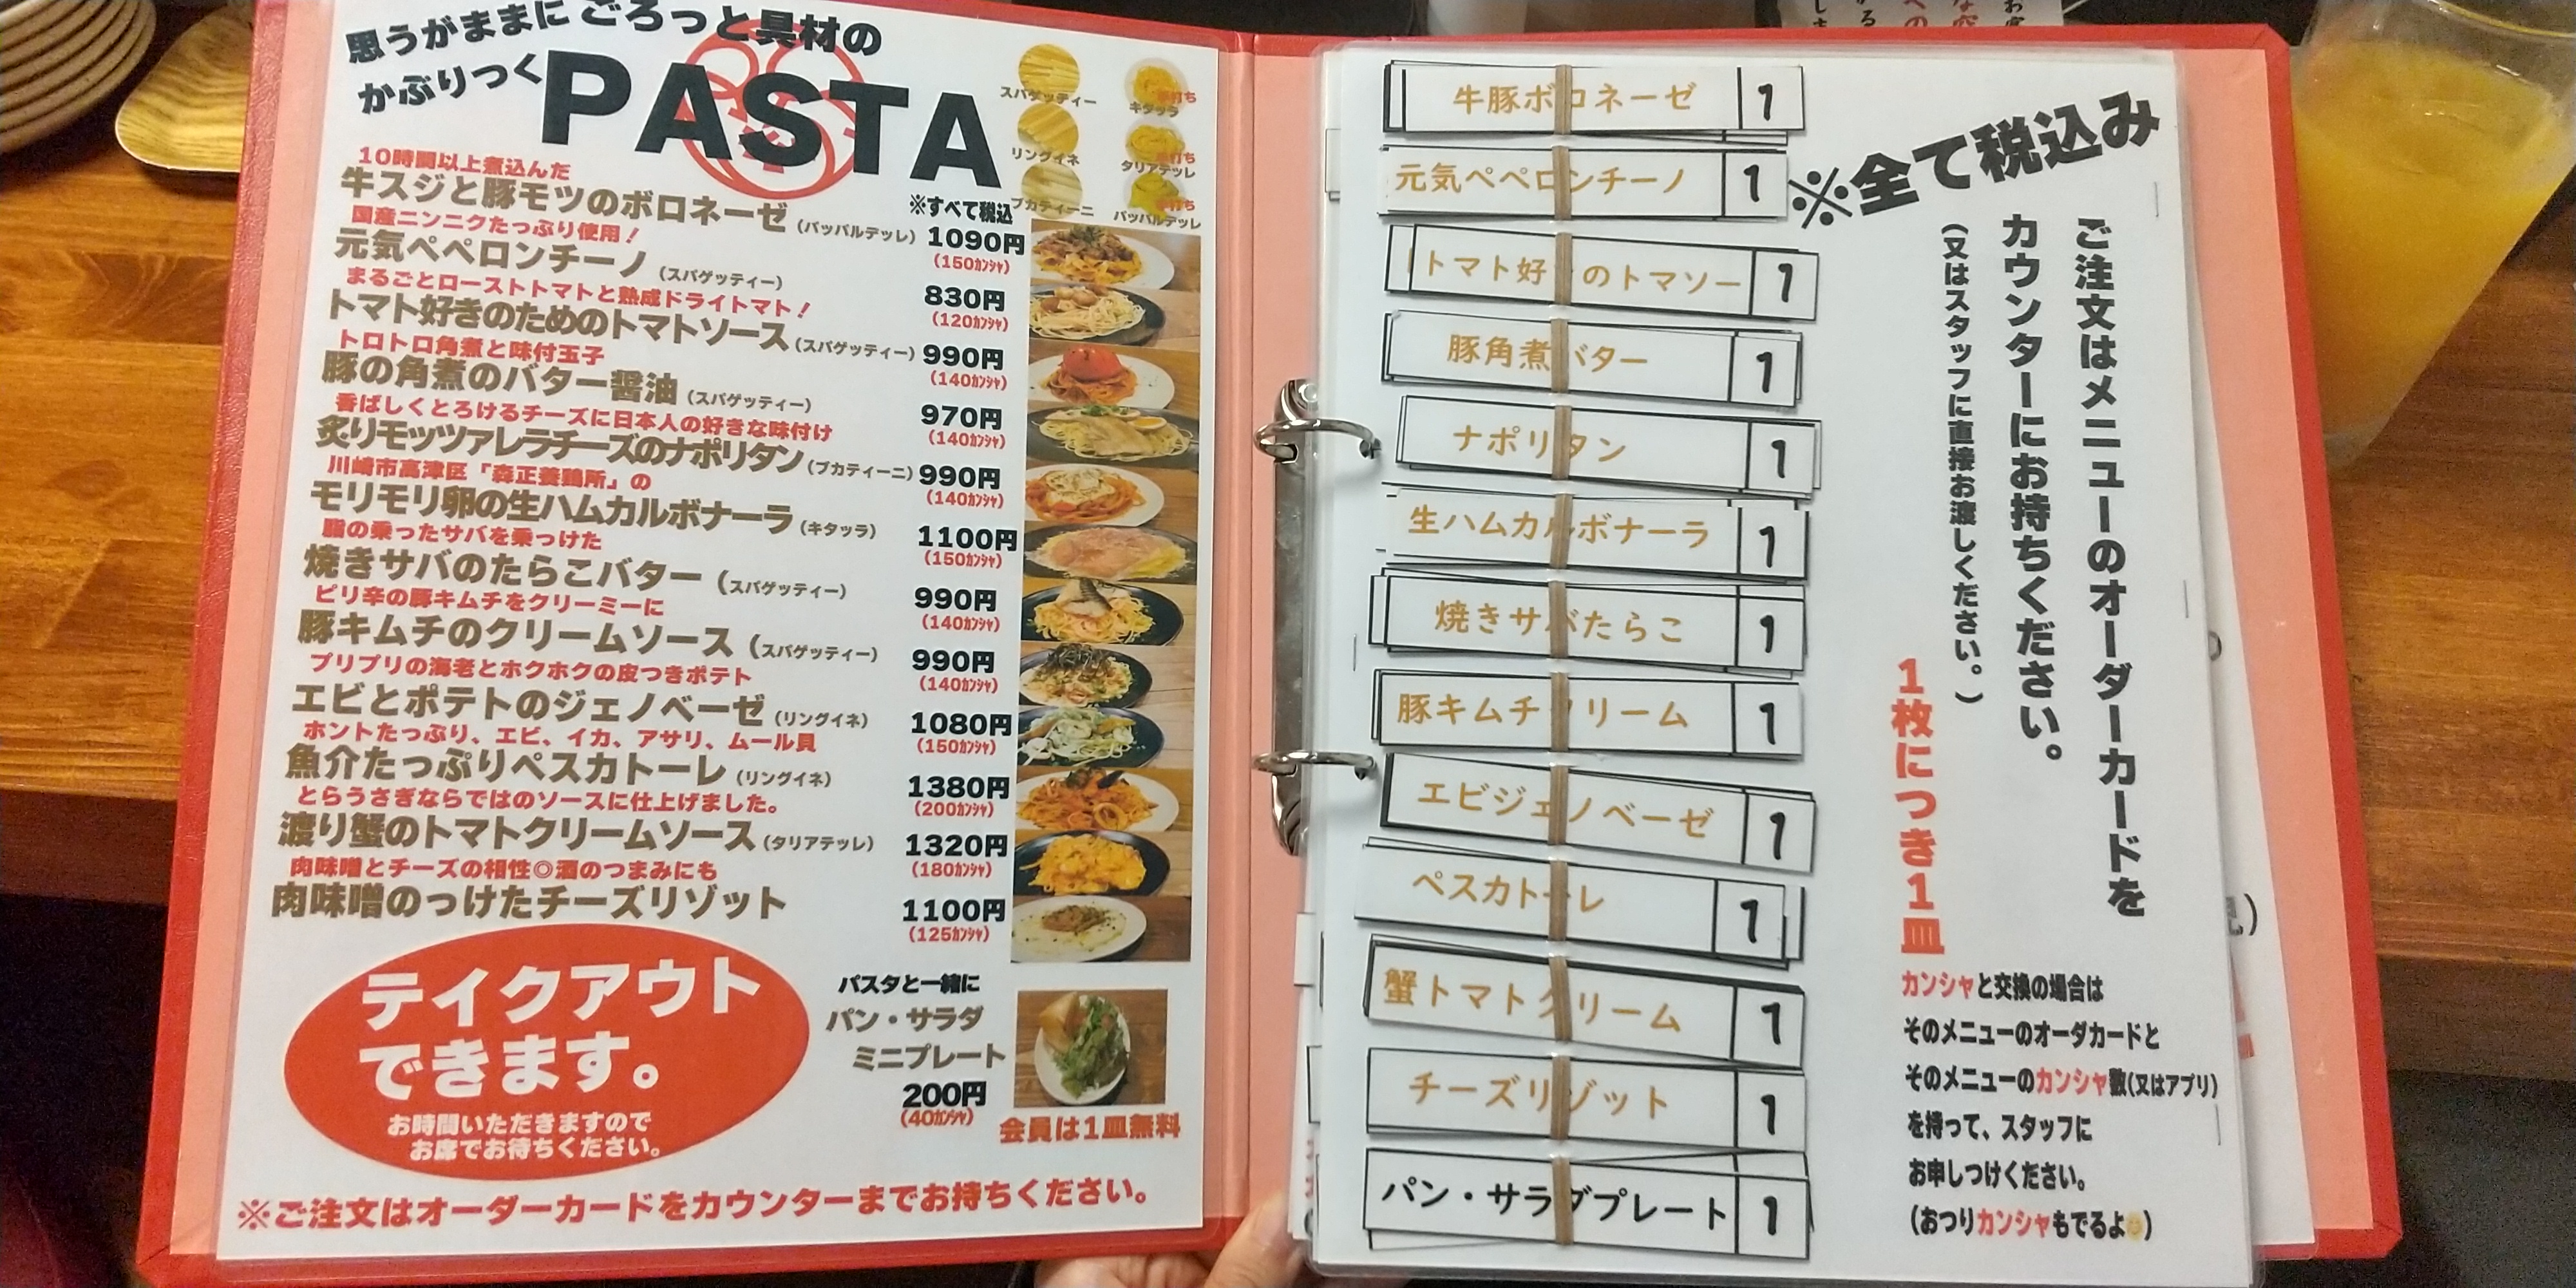 思うがままに ごろっと具材の
かぶりつく PASTA
スパゲッティー
手打ち
キタッラ
リングイネ
手打ち
タリアテッレ
ブカティーニ
手打ち
パッパルデッレ
※すべて税込
10時間以上煮込んだ
牛スジと豚モツのボロネーゼ (パッパルデッレ) 1090円
(150カンシャ)
国産ニンニクたっぷり使用!
元気ペペロンチーノ (スパゲッティー) 830円
(120カンシャ)
まるごとローストトマトと熟成ドライトマト!
トマト好きのためのトマトソース (スパゲッティー) 990円
(140カンシャ)
トロトロ角煮と味付玉子
豚の角煮のバター醤油 (スパゲッティー) 970円
(140カンシャ)
香ばしくとろけるチーズに日本人の好きな味付け
炙りモッツァレラチーズのナポリタン (ブカティーニ) 990円
(140カンシャ)
川崎市高津区「森正養鶏所」の
モリモリ卵の生ハムカルボナーラ (キタッラ) 1100円
(150カンシャ)
脂の乗ったサバを乗っけた
焼きサバのたらこバター (スパゲッティー) 990円
(140カンシャ)
ピリ辛の豚キムチをクリーミーに
豚キムチのクリームソース (スパゲッティー) 990円
(140カンシャ)
プリプリの海老とホクホクの皮つきポテト
エビとポテトのジェノベーゼ (リングイネ) 1080円
(150カンシャ)
ホントたっぷり、エビ、イカ、アサリ、ムール貝
魚介たっぷりペスカトーレ (リングイネ) 1380円
(200カンシャ)
とらうさぎならではのソースに仕上げました。
渡り蟹のトマトクリームソース (タリアテッレ) 1320円
(180カンシャ)
肉味噌とチーズの相性◎酒のつまみにも
肉味噌のっけたチーズリゾット 1100円
(125カンシャ)
テイクアウト
できます。
お時間いただきますので
お席でお待ちください。
パスタと一緒に
パン・サラダ
ミニプレート
200円
(40カンシャ)
会員は1皿無料
※ご注文はオーダーカードをカウンターまでお持ちください。
牛豚ボロネーゼ 1
元気ペペロンチーノ 1
トマト好きのトマソー 1
豚角煮バター 1
ナポリタン 1
生ハムカルボナーラ 1
焼きサバたらこ 1
豚キムチクリーム 1
エビジェノベーゼ 1
ペスカトーレ 1
蟹トマトクリーム 1
チーズリゾット 1
パン・サラダプレート 1
※全て税込み
ご注文はメニューのオーダーカードを
カウンターにお持ちください。
(又はスタッフに直接お渡しください。)
1枚につき1皿
カンシャと交換の場合は
そのメニューのオーダカードと
そのメニューのカンシャ数(又はアプリ)
を持って、スタッフに
お申しつけください。
(おつりカンシャもでるよ)